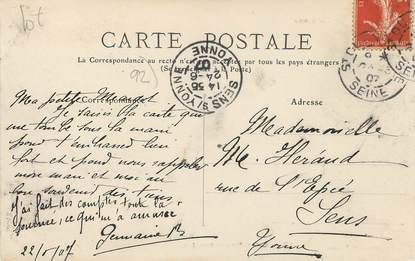 CARTE POSTALE
La Correspondance au recto n'est pas acceptée par tous les pays étrangers
92
Correspondance
Adresse
SENS S/YONNE
YONNE
14 35
24-6
07
SEINE
07
Ma petite
Je saisis la carte que
me tombe sous la main
pour t'embrasser bien
fort et
mon mari et moi au
bon souvenir des tiens
J'ai fait des comptes toute la
journée, ce qui m'a amusée
Germaine
22/6/07
Mademoiselle
M. Héraud
rue de l'Epée
Sens
Yonne